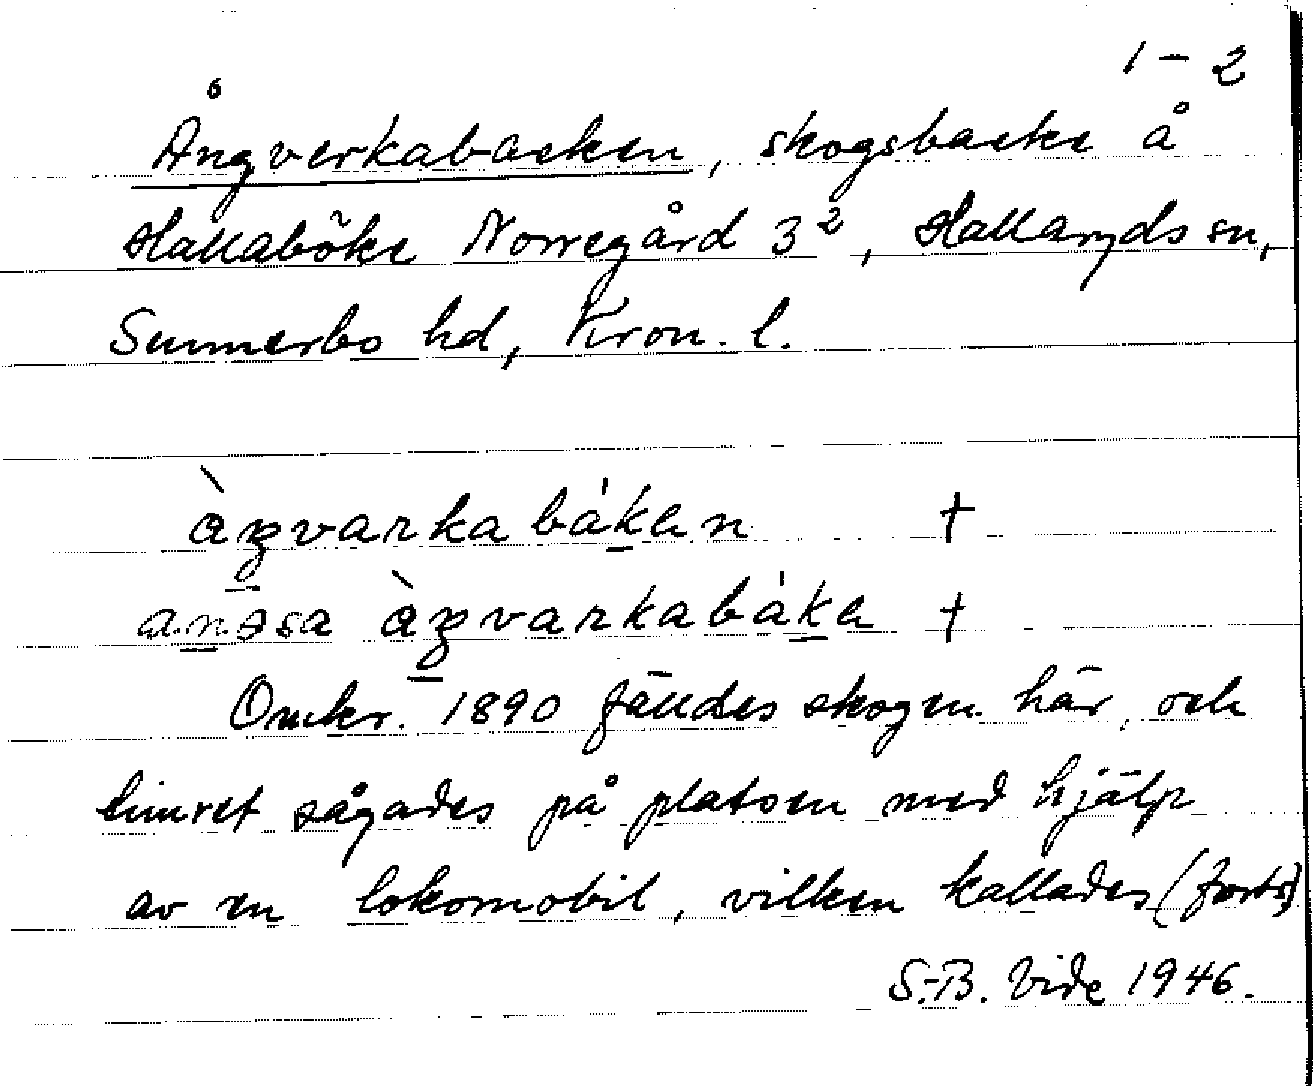 1 – 2
Ångverkabacken, skogsbacke å
Hallaböke Norregård 3², Hallaryds sn,
Sunnerbo hd, Kron. l.
Omkr. 1890 fälldes skogen här, och
timret sågades på platsen med hjälp
av en lokomobil, vilken kallades (forts)
S.-B. Vide 1946.